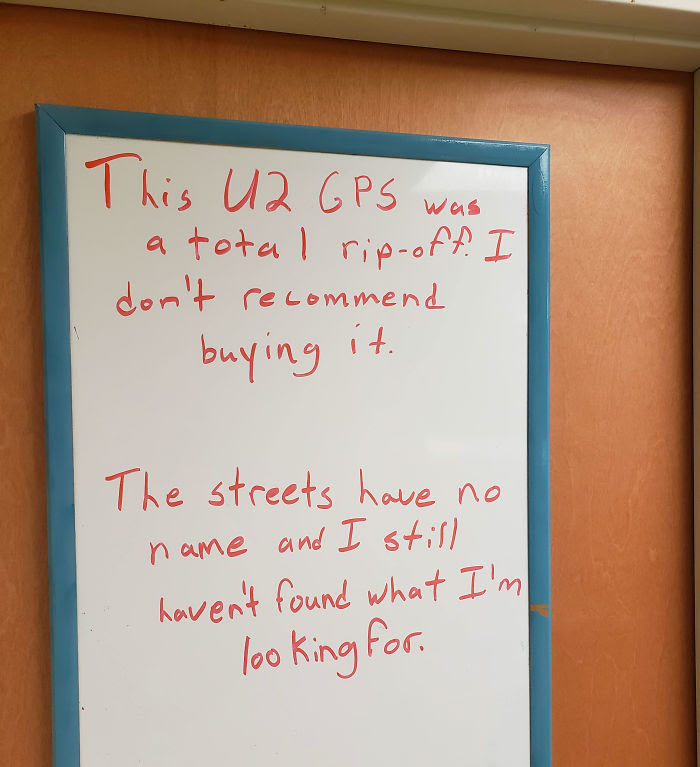 This U2 GPS was
a total rip-off. I
don't recommend
buying it.
The streets have no
name and I still
haven't found what I'm
looking for.